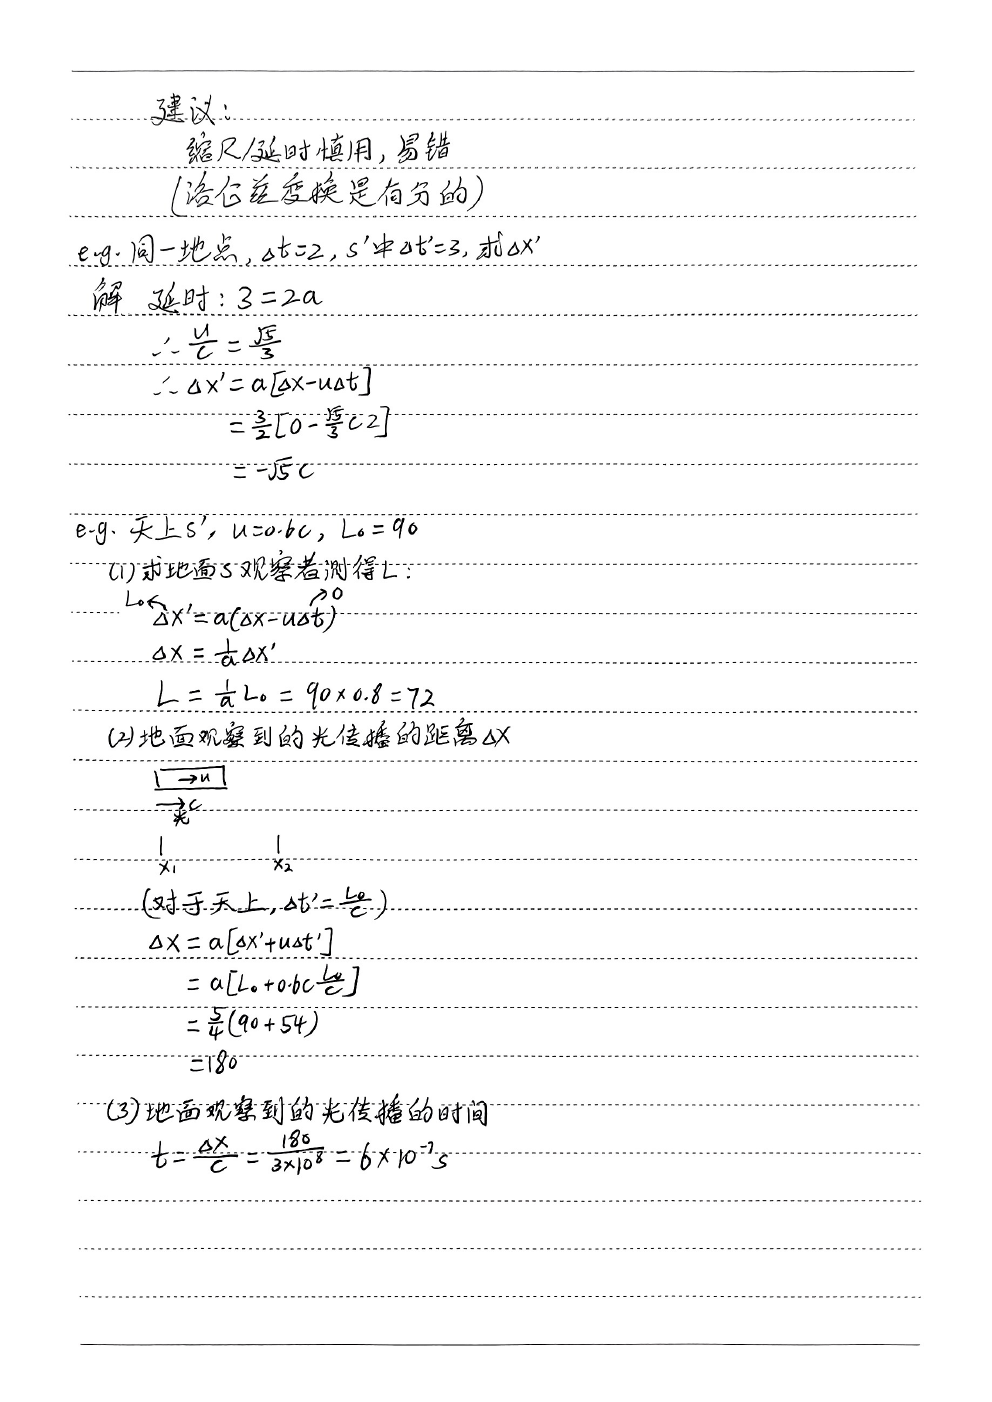 建议:
缩尺/延时慎用,易错
(洛仑兹变换是有分的)
e.g. 同一地点,Δt=2,S'中Δt'=3,求Δx'
解 延时:3=2a
∴ u/c = √5/3
∴ Δx'=a[Δx-uΔt]
=3/2[0-√5/3 c2]
=-√5c
e.g. 天上S', u=0.6c, L₀=90
(1)求地面S观察者测得L:
L₀ 0
Δx'=a(Δx-uΔt)
Δx = 1/a Δx'
L = 1/a L₀ = 90×0.8=72
(2)地面观察到的光传播的距离Δx
→u
→c
光
x₁ x₂
(对于天上,Δt'=L₀/c)
Δx=a[Δx'+uΔt']
=a[L₀+0.6c L₀/c]
=5/4(90+54)
=180
(3)地面观察到的光传播的时间
t=Δx/c=180/3×10⁸=6×10⁻⁷s